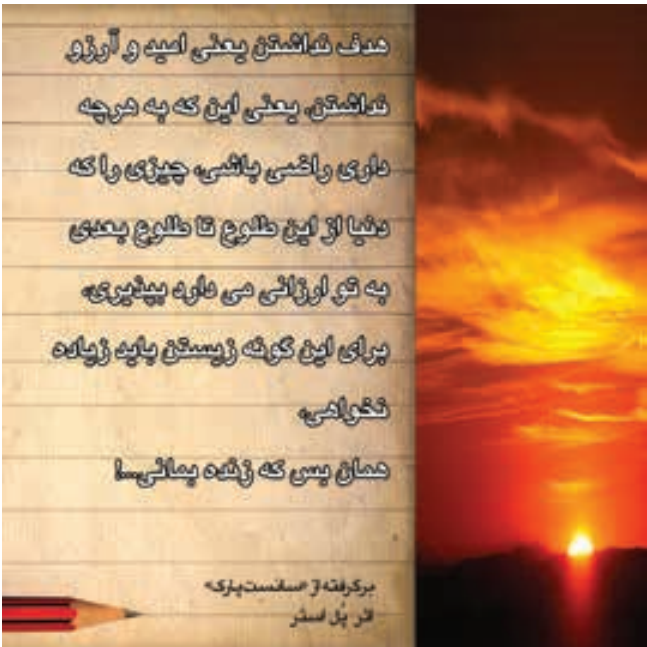 هدف نداشتن یعنی امید و آرزو
نداشتن. یعنی این که به هرچه
داری راضی باشی، چیزی را که
دنیا از این طلوع تا طلوع بعدی
به تو ارزانی می دارد بپذیری،
برای این گونه زیستن باید زیاده
نخواهی،
همان بس که زنده بمانی...!
برگرفته از «سانست‌پارک»
اثر پُل استر